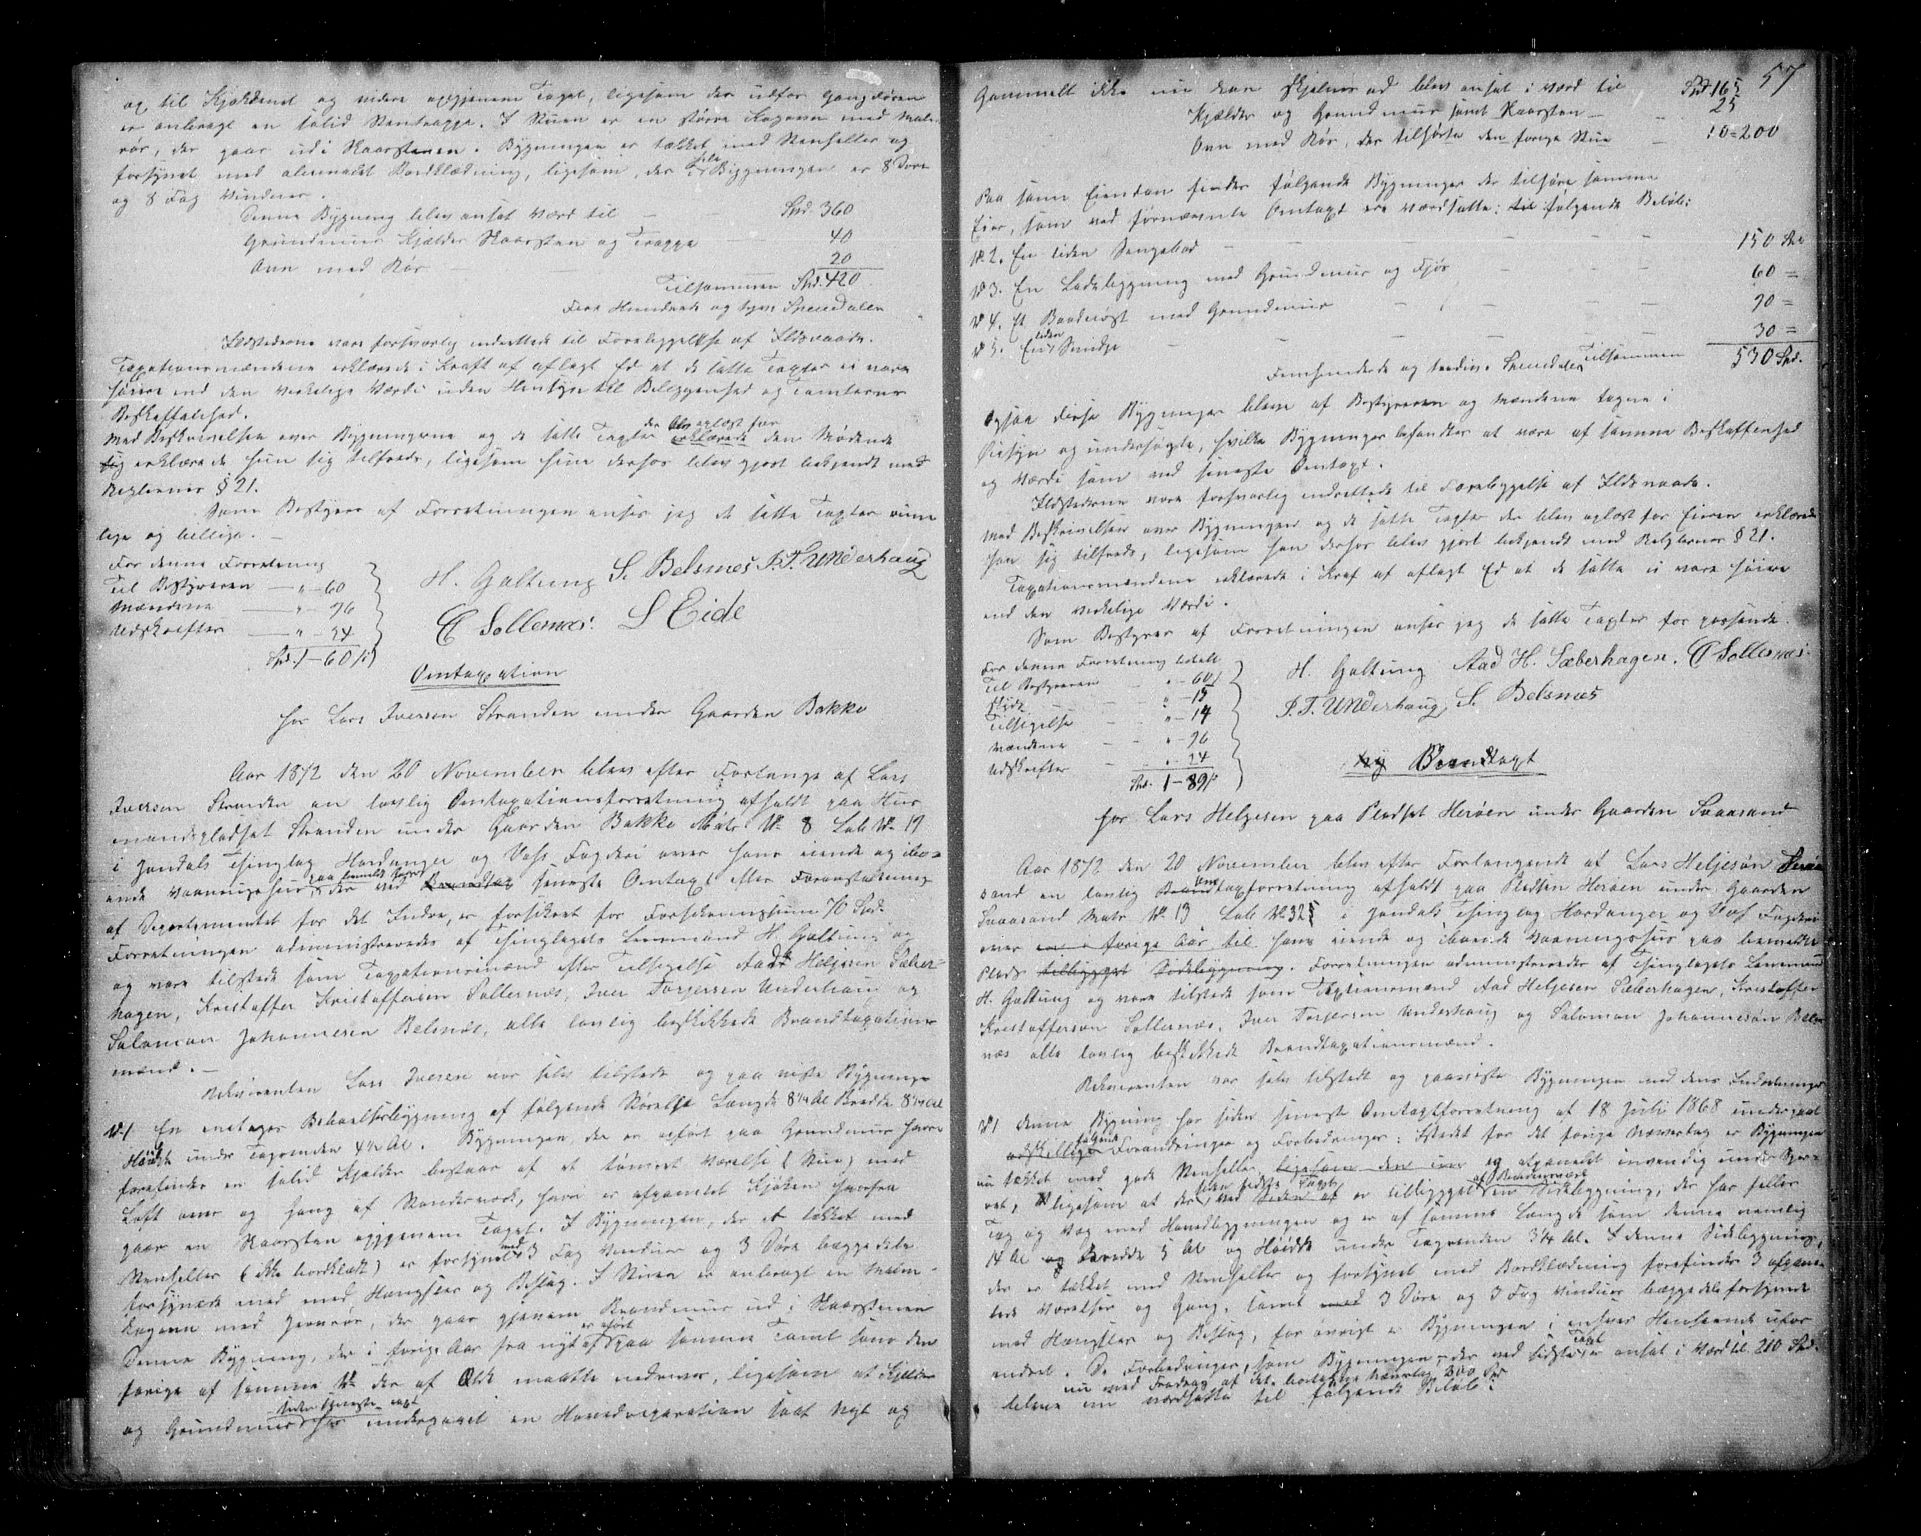 og til Kjøkkenet og videre opigjennem Taget, ligesom der udfor Gangdøren
er anbragt en solid Stentrappe. I Stuen er en større Kogovn med Malm-
rør, der gaar ud i Skaarstenen. Bygningen er tækket med Stenheller og
forsynet med alenmaalt Bordklædning, ligesom der i hele Bygningen er 8 Døre
og 8 Fag Vinduer.
Denne Bygning blev ansat Værd til — Spd. 360
Grundmuur Kjælder Skaarsten og Trappe — 40
Ovn med Rør — 20
Tilsammen Spd. 420
Fire Hundrede og tyve Speciedaler
Ildstederne vare forsvarlig indrettede til Forebyggelse af Ildsvaade.
Taxationsmændene erklærede i Kraft af aflagt Ed at de satte Taxter ei vare
høiere end den virkelige Værdi uden Hensyn til Beliggenhed og Tomternes
Beskaffenhed.
Med Beskrivelsen over Bygningerne og de satte Taxter der blev oplæst for erklærede den Mødende
sig erklærede hun sig tilfreds, ligesom hun derhos blev gjort bekjendt med
Reglernes § 21.
Som Bestyrer af Forretningen anser jeg de satte Taxter rime
lige og billige. —
For denne Forretning
Til Bestyreren — " – 60
Mændene — " – 96
Udskrifter — " – 24
Spd. 1 – 60 ß
H. Galtung S. Belsnæs I. T. Underhaug
C Sollesnæs. L Eide
Omtaxation
for Lars Iversen Stranden under Gaarden Bakke
Aar 1872 den 20 November blev efter Forlangende af Lars
Iversen Stranden en lovlig Omtaxationsforretning afholdt paa Huus
mandspladset Stranden under Gaarden Bakke Matr. No. 8 Løb No. 19
i Jondals Thinglag Hardanger og Voss Fogderi over hans eiende og ibo-
ende Vaaningshuus paa bemeldte Plads, der ved Brandtax seneste Omtaxt efter Foranstaltning
af Departementet for det Indre, er forsikret for Forsikringssum 70 Spd.
Forretningen administreredes af Thinglagets Lensmand H. Galtung og
og vare tilstede som Taxationsmænd efter Tilsigelse Aad Helgesen Sæber-
hagen, Kristoffer Kristoffersen Sollesnæs, Iver Torjersen Underhaug og
Salomon Johannesen Belsnæs, alle lovlig beskikkede Brandtaxations
mænd. —
Rekvirenten Lars Iversen var selv tilstede og paaviste Bygninge
No. 1 En etages Beboelsesbygning af følgende Størrelse Længde 8¼ Al Bredde 8¼ Al
Høide under Tagrenden 4¼ Al. Bygningen der er opført paa Grundmuur hvori
forefindes en solid Kjælder bestaar af et tømret Værelse (Stue) med
Loft over og Gang af Standerværk, hvori er afpanelet Kjøken hvorfra
gaar en Skaarsten opgjennem Taget. I Bygningen, der er tækket med
Stenheller (ikke bordklædt) er forsynet med 3 Fag Vinduer og 3 Døre begge dele
forsynede med med Hængsler og Beslag. I Stuen er anbragt en Malm-
kogovn med Jernrør, der gaar gjennem Brandmuur ud i Skaarstenen
Denne Bygning, der i forige Aar fra nyt af er opført paa samme Tomt som den
forige af samme No. der af Ælde maatte nedrives, ligesom at Kjelder
og Grundmuur siden seneste Taxt har undergaaet en Hovedreparation saat Nyt og

57
Gammelt ikke nu kan skjelnes ad blev ansat i Værd til Spd. 165
Kjælder og Grundmuur samt Skaarsten — 25
Ovn med Rør, der tilhørte den forige Stue — 10 = 200
Paa samme Eiendom findes følgende Bygninger der tilhøre samme
Eier, som ved førnævnte Omtaxt ere værdsatte: til følgende Beløb:
No. 2. En liden Sengebod — 150 Spd
No. 3. En Ladebygning med Grundmuur og Fjøs — 60 =
No. 4. Et Baadenøst med Grundmuur — 90 =
No. 5. En liden Smidje — 30 =
Tilsammen 530 Spd.
Femhundrede og tredive Speciedaler
Ogsaa disse Bygninger bleve af Bestyreren og Mændene tagne i
Øiesyn og undersøgte, hvilke Bygninger befandtes at være af samme Beskaffenhed
og Værdi som ved seneste Omtaxt.
Ildstederne vare forsvarlig indrettede til Forebyggelse af Ildsvaade.
Med Beskrivelsen over Bygningen og de satte Taxter der blev oplæst for Eieren erklærede
han sig tilfreds, ligesom han derhos blev gjort bekjendt med Reglernes § 21.
Taxationsmændene erklærede i Kraf af aflagt Ed at de satte ei vare høiere
end den virkelige Værdi.
Som Bestyrer af Forretningen anser jeg de satte Taxter for passende.
For denne Forretning betalt
Til Bestyreren — " – 60 ß
Skyds — " – 15
Tilsigelse — " – 14
Mændene — " – 96
Udskrifter — " – 24
Spd. 1 – 89 ß
H. Galtung Aad H. Sæberhagen. C Sollesnæs.
I. T. Underhaug, S. Belsnæs
Ny Brandtaxt
for Lars Helgesen paa Pladset Herøen under Gaarden Svaasand
Aar 1872 den 20 November blev efter Forlangende af Lars Helgesøn Svaa
sand en lovlig Brandtaxforretning afholdt paa Pladsen Herøen under Gaarden
Svaasand Matr No. 13 Løb No. 32 i Jondals Thinglag Hardanger og Voss Fogderi
over en i forige Aar til hans eiende og iboende Vaaningshus paa bemeldte
Plads tilbygget Sidebygning. Forretningen administreredes af Thinglagets Lensmand
H. Galtung og vare tilstede som Taxtionsmænd Aad Helgesen Sæberhagen, Kristoffer
Kristoffersøn Sollesnæs, Iver Torjersen Underhaug og Salomon Johannesøn Bels-
næs alle lovlig beskikkede Brandtaxationsmænd.
Rekvirenten var selv tilstede og paaviste Bygningen med dens Indretninger
No. 1 denne Bygning har siden senest Omtaxtforretning af 18 Juli 1868 undergaaet
adskillige følgende Forandringer og Forbedringer: Istedet for det forige Nævertag er Bygningen
nu tækket med gode Stenheller, ligesom den er og afpanelet invendig under Sper-
ret, ligesom at der siden sidste Taxt er tilbygget af Standerværk en Sidebygning, der har fælles
Tag og Væg med Hovedbygningen og er af samme Længde som denne nemlig
14 Al og Bredde 5 Al og Høide under Tagrenden 3¼ Al. I denne Sidebygning,
der er tækket med Stenheller og forsynet med Bordklædning forefindes 3 afpane-
lede Værelser og Gang, samt med 3 Døre og 3 Fag Vinduer begge dele forsynede
med Hængsler og Beslag, for øvrigt er Bygningen i enhver Henseende ufor
andret. De Forbedringer, som Bygningen, der ved sidste Taxt er ansat i Værd til 210 Spd.
nu med Fradrag af det bortagne Nævertag 300 Spd
bleve nu værdsatte til følgende Beløb: